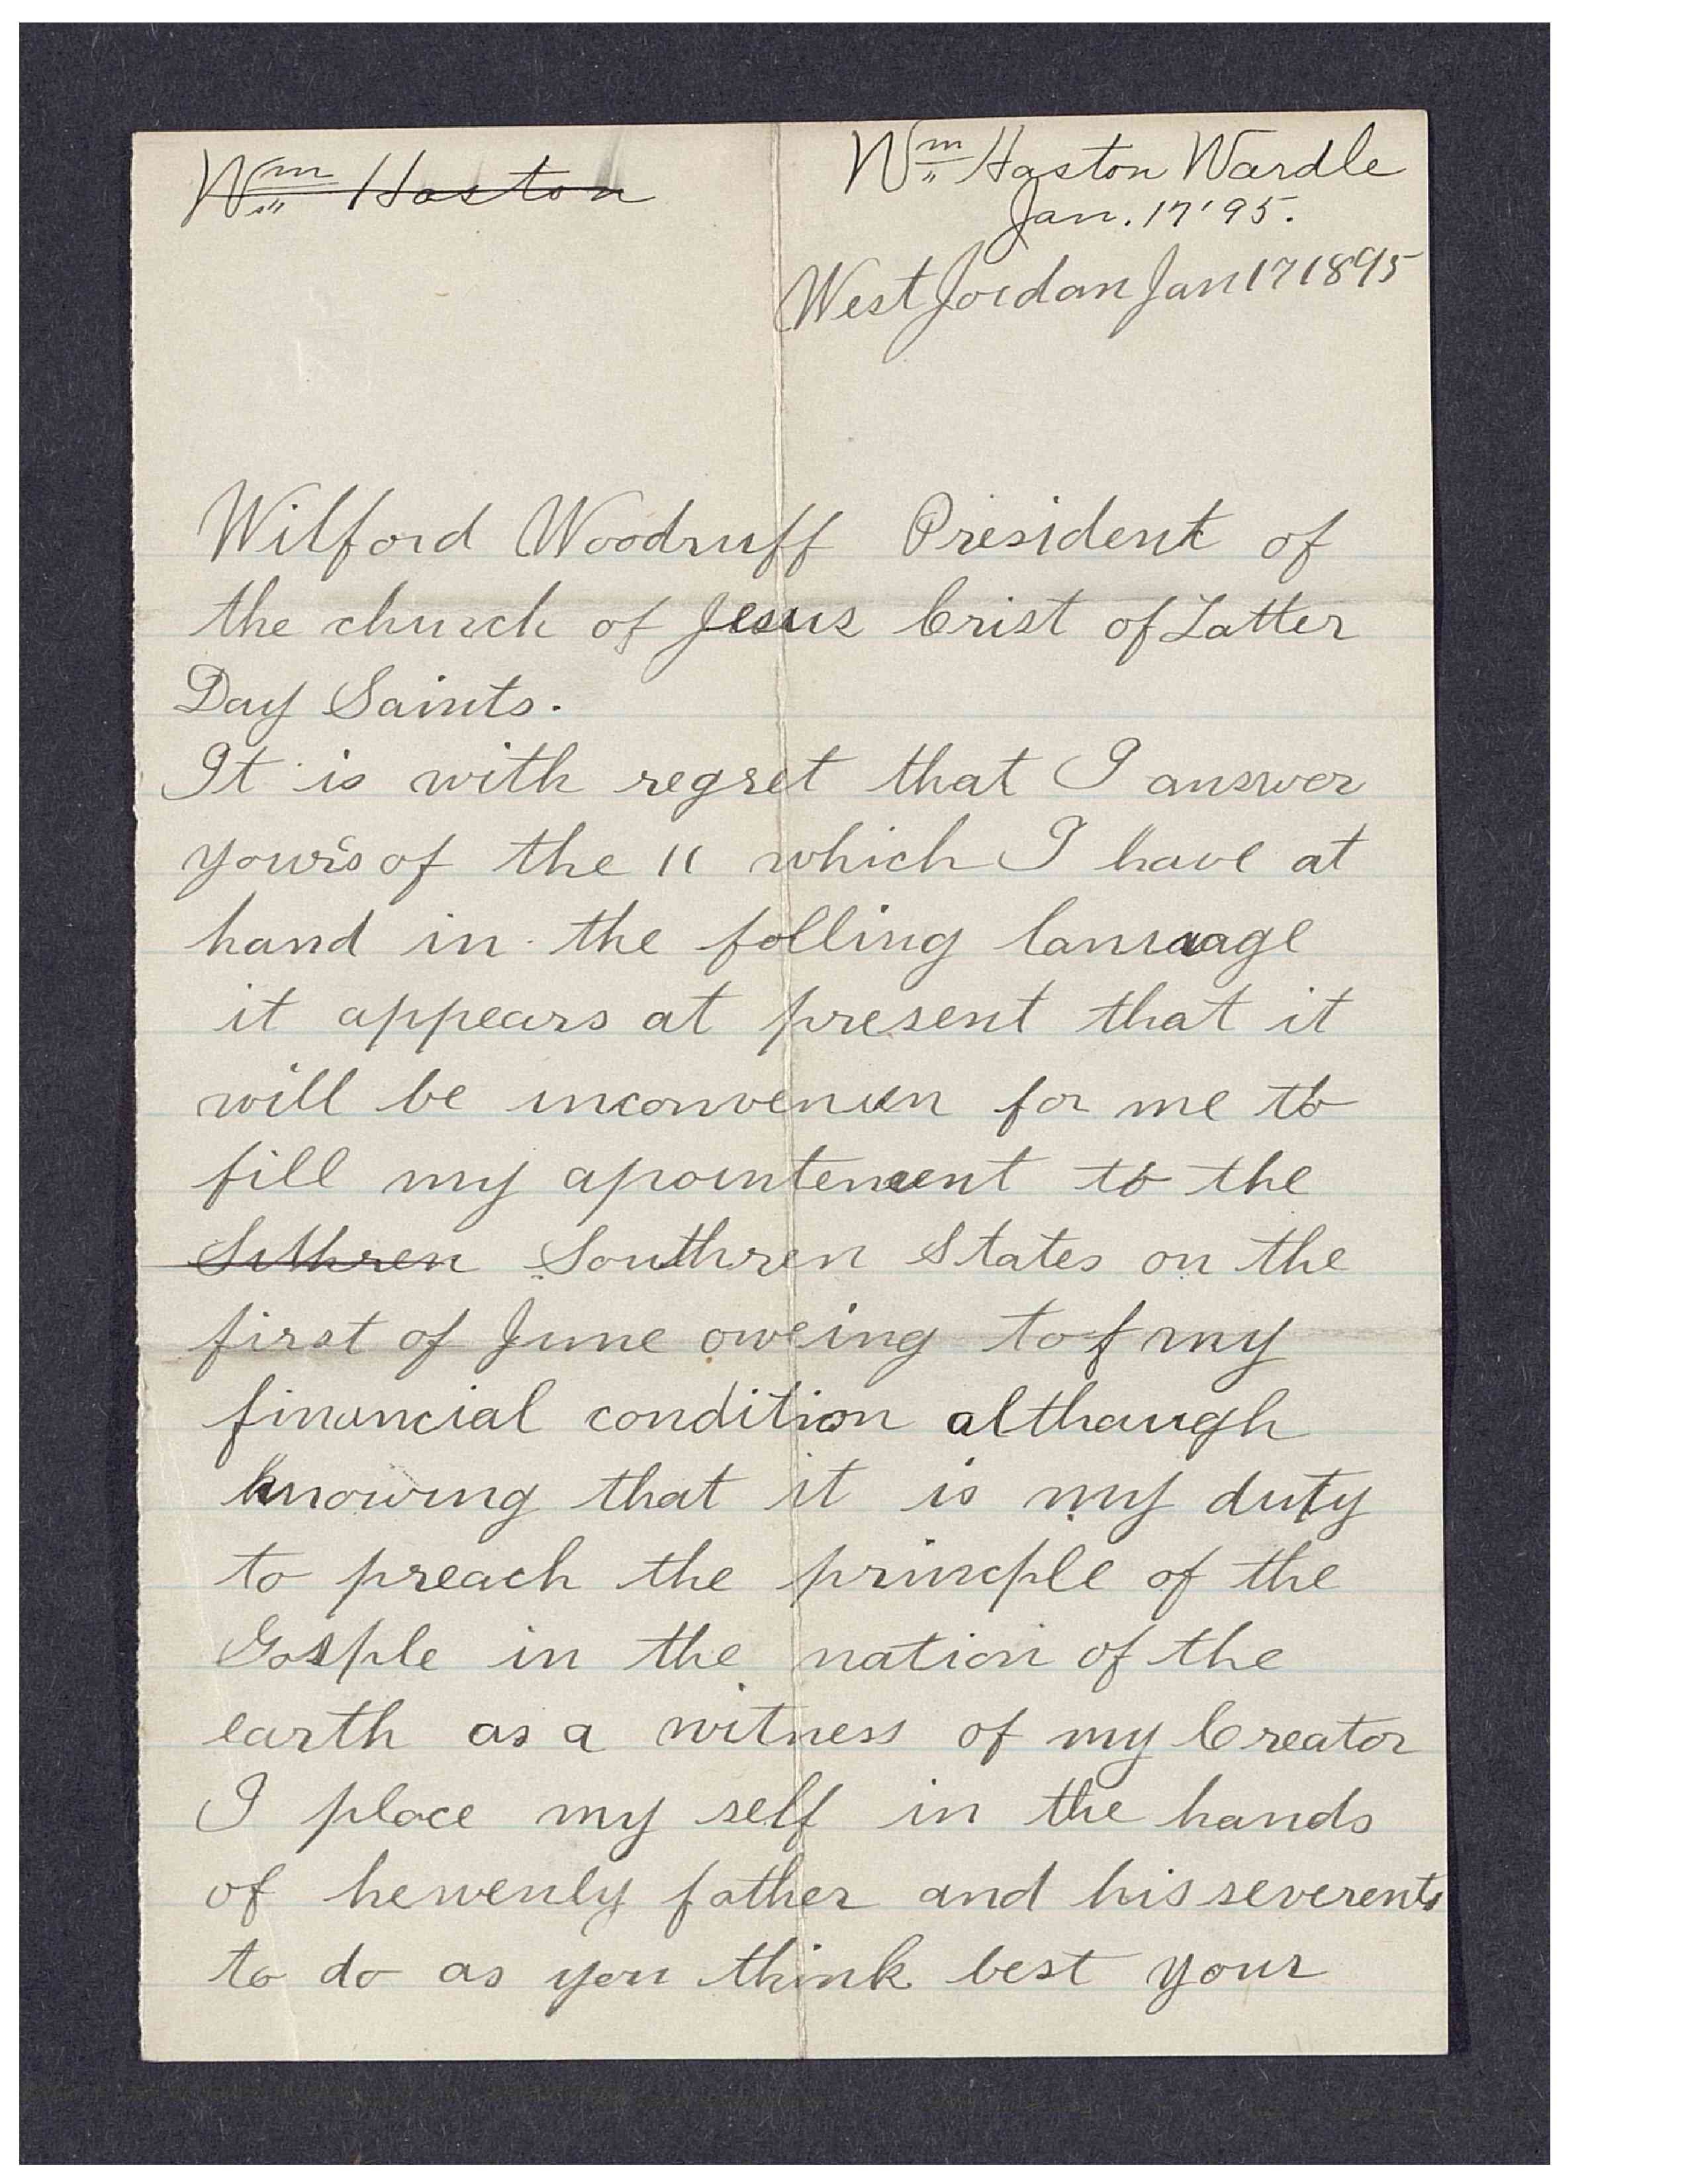 ~~Wm Haston~~
Wm Haston Wardle
Jan. 17 '95.
West Jordan Jan 17 1895
Wilford Woodruff President of
the church of Jesus Crist of Latter
Day Saints.
It is with regret that I answer
yours of the 11 which I have at
hand in the folling lanuage
it appears at present that it
will be inconvenien for me to
fill my apointement to the
~~Suthren~~ Southren States on the
first of June oweing to f my
financial condition although
knowing that it is my duty
to preach the princple of the
Gosple in the nation of the
earth as a witness of my Creator
I place my self in the hands
of hevvenly father and his severents
to do as you think best your